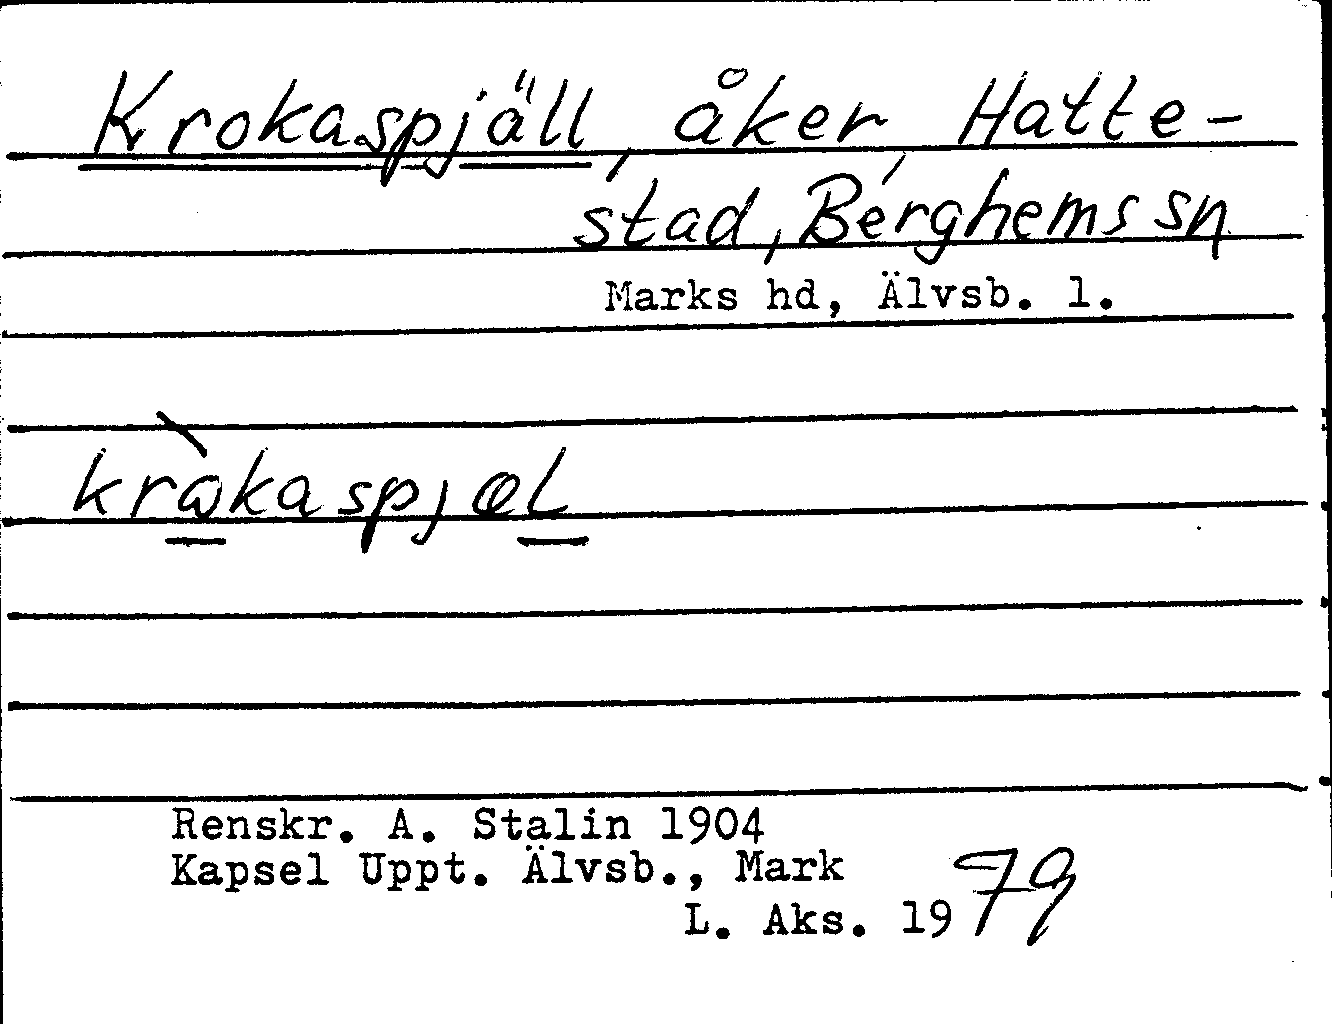 Krokaspjäll, åker, Hatte-
stad, Berghems sn
Marks hd, Älvsb. l.
kròkaspjæl
Renskr. A. Stalin 1904
Kapsel Uppt. Älvsb., Mark
L. Aks. 1979